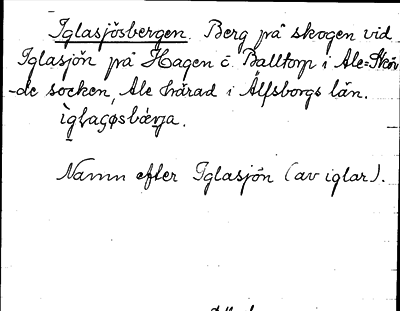 Iglasjösbergen. Berg på skogen vid
Iglasjön på Hagen o. Balltorp i Ale=Sköv-
de socken, Ale härad i Älfsborgs län.
Namn efter Iglasjön (av iglar).